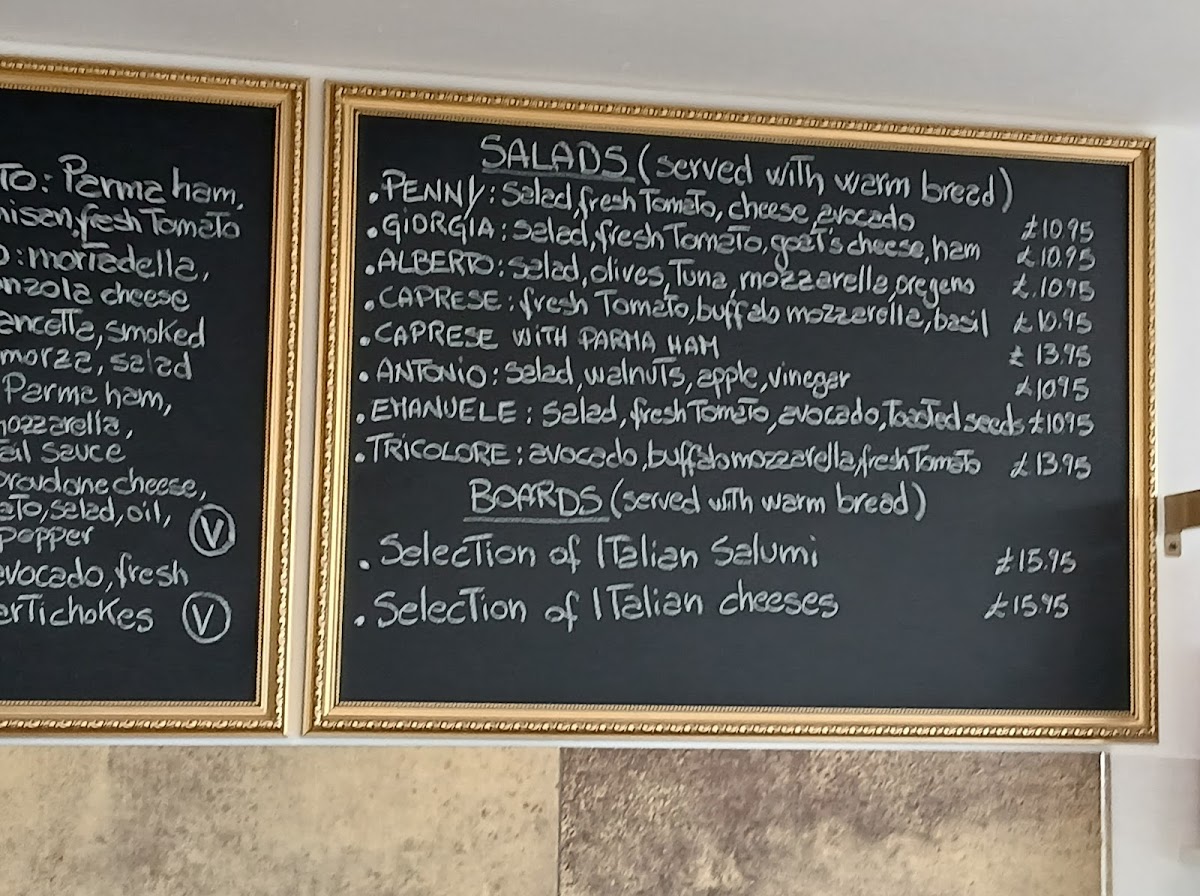 TO: Parma ham,
fresh Tomato
: mortadella,
cheese
smoked
salad
Parma ham,
sauce
cheese,
salad, oil,
pepper
V
avocado, fresh
artichokes
V
SALADS (served with warm bread)
. PENNY: salad, fresh Tomato, cheese, avocado £10.95
. GIORGIA: salad, fresh Tomato, goat's cheese, ham £10.95
. ALBERTO: salad, olives, Tuna, mozzarella, oregano £10.95
. CAPRESE: fresh Tomato, buffalo mozzarella, basil £10.95
. CAPRESE WITH PARMA HAM £13.95
. ANTONIO: salad, walnuts, apple, vinegar £10.95
. EMANUELE: salad, fresh Tomato, avocado, Toasted seeds £10.95
. TRICOLORE: avocado, buffalo mozzarella, fresh Tomato £13.95
BOARDS (served with warm bread)
. Selection of Italian Salumi £15.95
. Selection of Italian cheeses £15.95